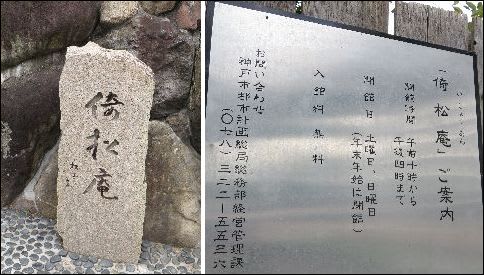 倚松庵
いしょうあん
「倚松庵」ご案内
開館時間 午前十時から
午後四時まで
開館日 土曜日、日曜日
(年末年始は閉館)
入館料 無料
お問い合わせ
神戸市都市計画総局総務部経営管理課
(〇七八)三二二ー五五三六